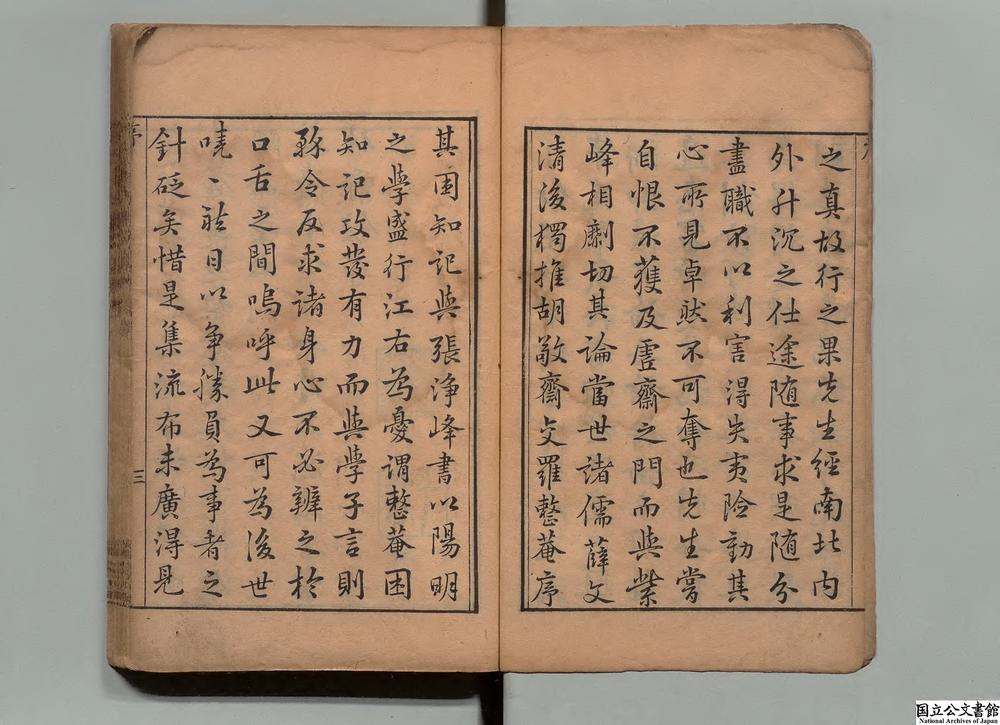 之真故行之果先生經南北内
外升沉之仕途随事求是随分
盡職不以利害得失夷險動其
心所見卓然不可奪也先生嘗
自恨不獲及虛齋之門而與紫
峰相劘切其論當世諸儒薛文
清後獨推胡敬齋文羅整菴序
其困知記與張淨峰書以陽明
之學盛行江右為憂謂整菴困
知記攻發有力而與學子言則
颡令反求諸身心不必辨之於
口舌之間嗚呼此又可為後世
嘵〻然日以争勝負為事者之
針砭矣惜是集流布未廣得見
序
三
国立公文書館
National Archives of Japan